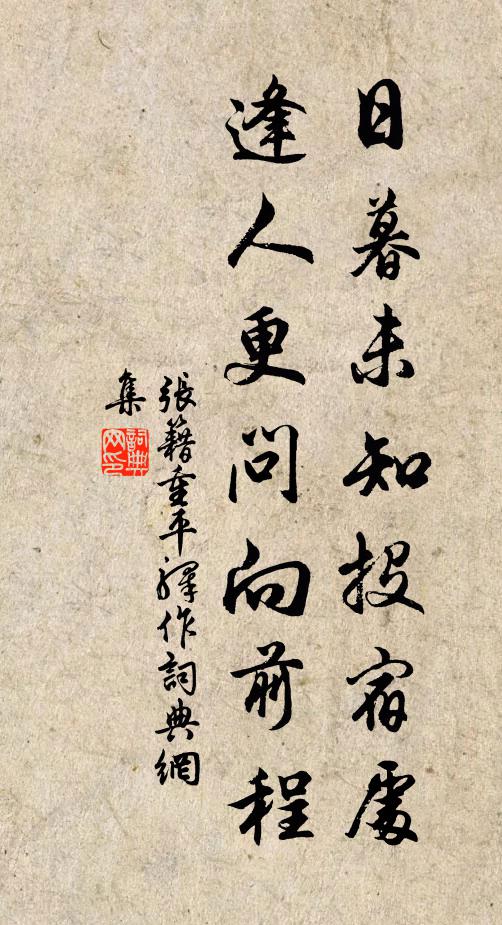 日暮未知投宿處
逢人更問向前程
張籍重平驛作詞典網
集
詞典
网印